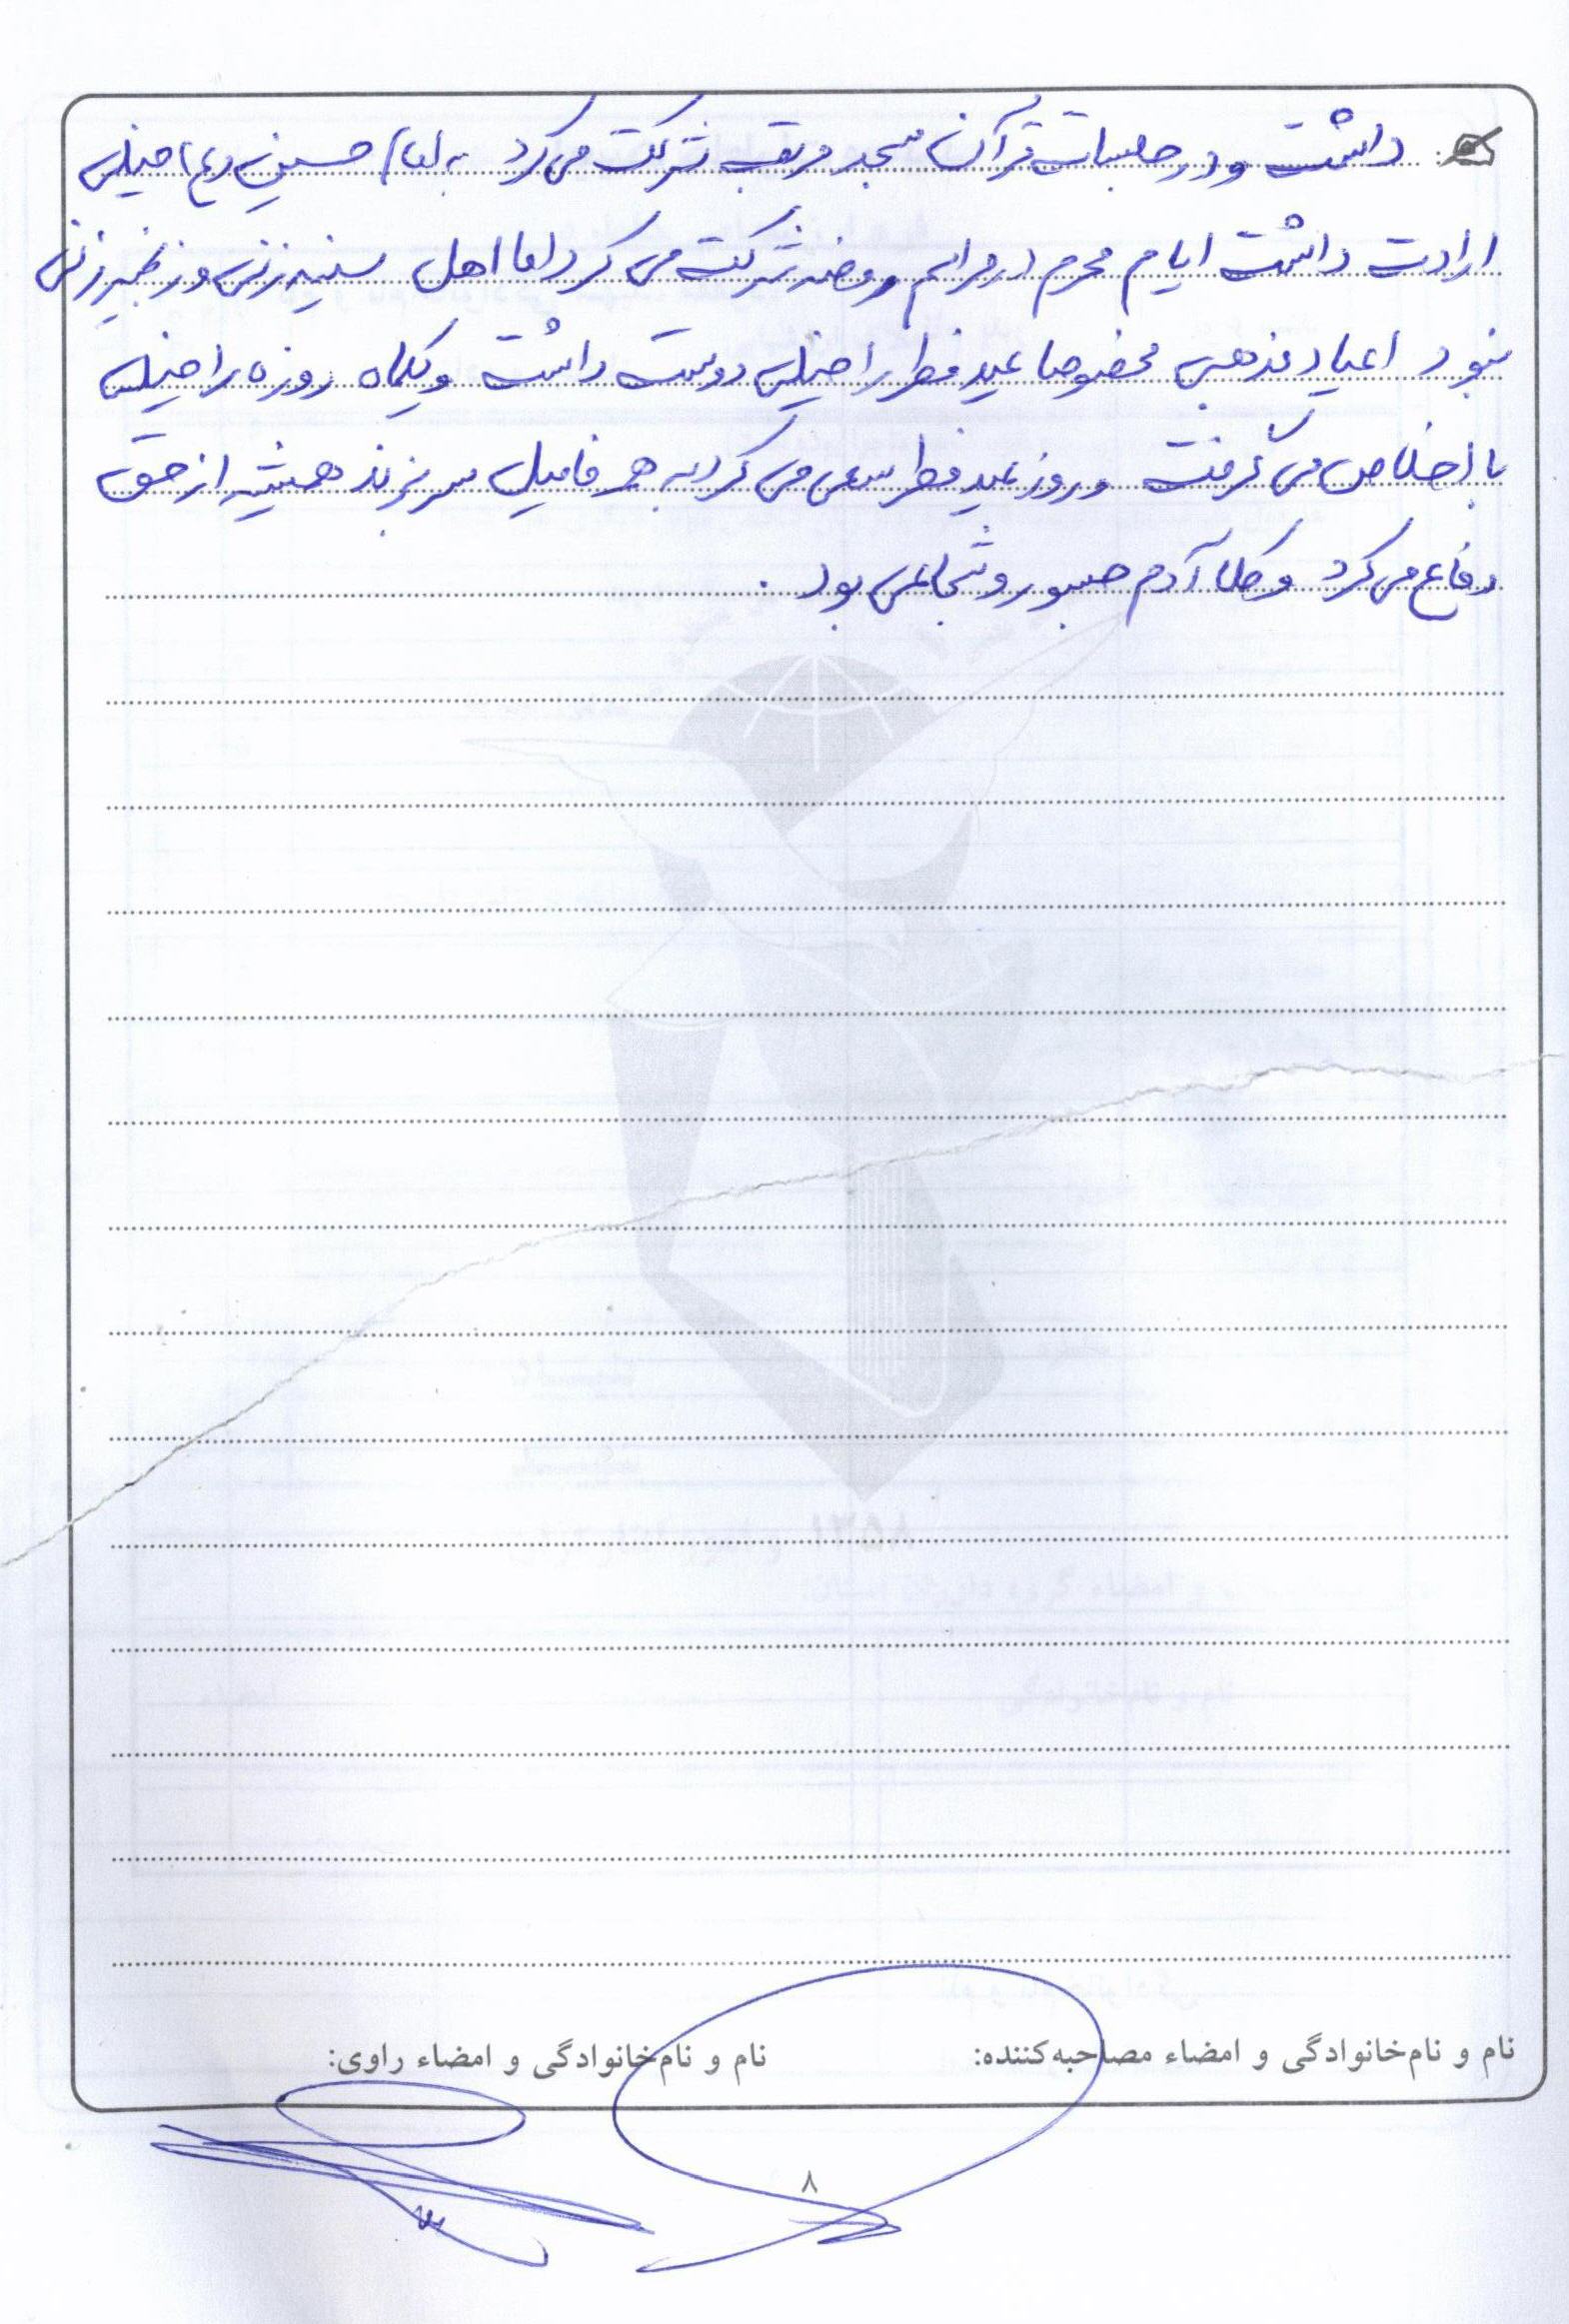 داشت و در جلسات قرآن مسجد مرتب شرکت می کرد به امام حسین (ع) خیلی
ارادت داشت ایام محرم در مراسم روضه شرکت می کرد اما اهل سینه زنی و زنجیر زنی
نبود اعیاد مذهبی مخصوصا عید فطر را خیلی دوست داشت و یکماه روزه را خیلی
با اخلاص می گرفت و روز عید فطر سعی می کرد به همه فامیل سر بزند همیشه از حق
دفاع می کرد و کلا آدم صبور و شجاعی بود .
نام و نام‌خانوادگی و امضاء مصاحبه‌کننده:
نام و نام‌خانوادگی و امضاء راوی:
۸